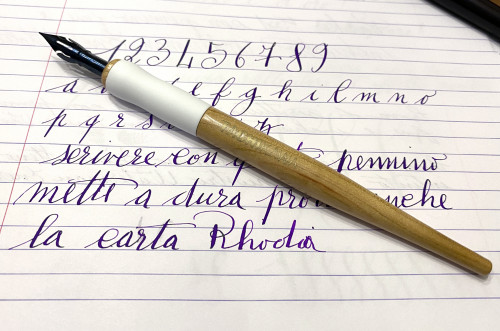 123456789
a e f g h i l m n o
p q r s z
scrivere con pennino
mette a dura
la carta Rhodia